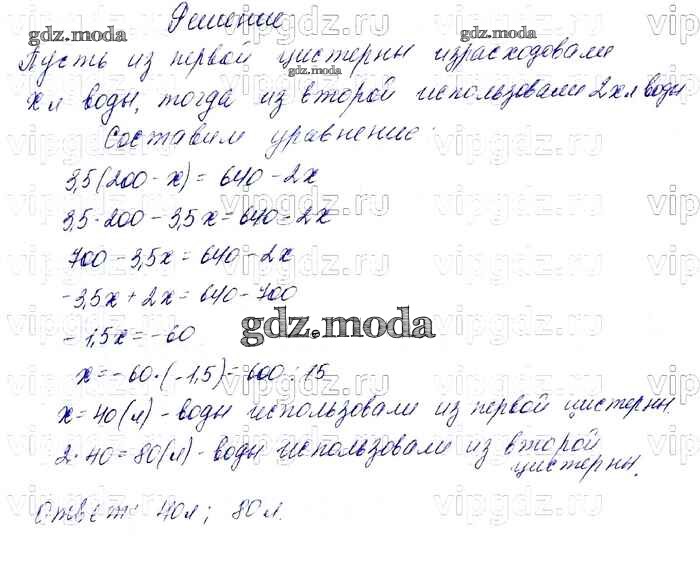 Решение
gdz.moda
Пусть из первой цистерны израсходовали
gdz.moda
х л воды, тогда из второй использовали 2х л воды
gdz.moda
Составим уравнение:
3,5(200 - х) = 640 - 2х
3,5·200 - 3,5х = 640 - 2х
700 - 3,5х = 640 - 2х
-3,5х + 2х = 640 - 700
-1,5х = -60
gdz.moda
х = -60·(-1,5) = 600 : 15
х = 40(л) - воды использовали из первой цистерны.
2·40 = 80(л) - воды использовали из второй
цистерны.
Ответ: 40л; 80л.
vipgdz.ru